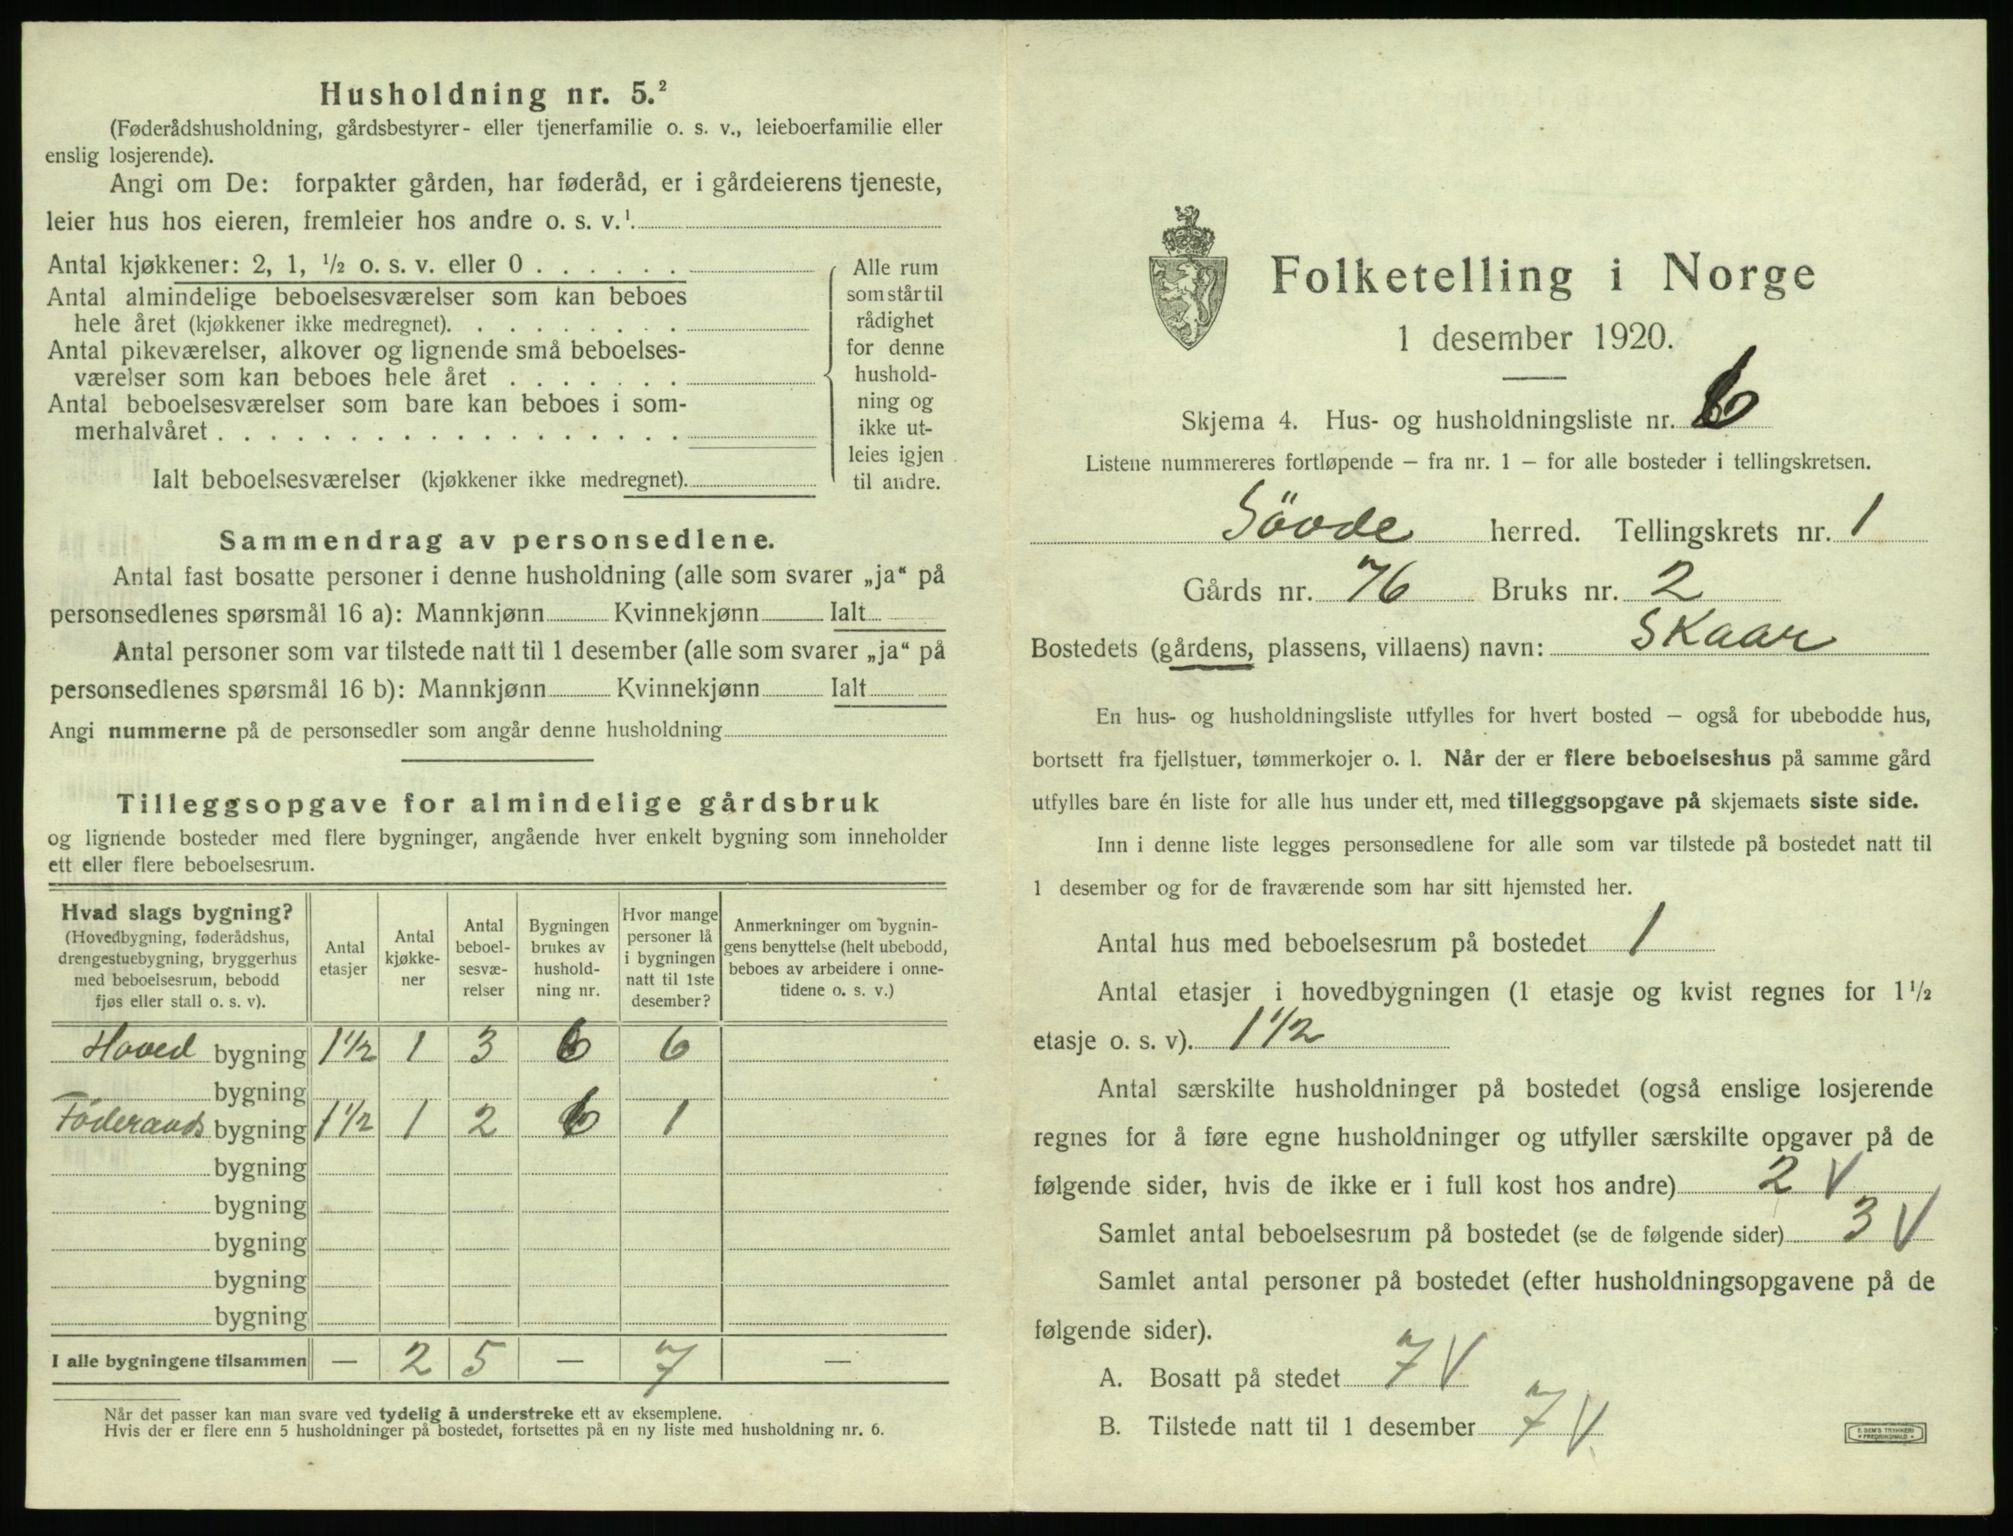 Husholdning nr. 5.²
(Føderådshusholdning, gårdsbestyrer- eller tjenerfamilie o. s. v., leieboerfamilie eller
enslig losjerende).
Angi om De: forpakter gården, har føderåd, er i gårdeierens tjeneste,
leier hus hos eieren, fremleier hos andre o. s. v.¹
Antal kjøkkener: 2, 1, ½ o. s. v. eller 0 . . . . . .
Antal almindelige beboelsesværelser som kan beboes
hele året (kjøkkener ikke medregnet). . . . . . . . .
Antal pikeværelser, alkover og lignende små beboelses-
værelser som kan beboes hele året . . . . . . .
Antal beboelsesværelser som bare kan beboes i som-
merhalvåret . . . . . . . . . . . . . . . . . .
Ialt beboelsesværelser (kjøkkener ikke medregnet).
Alle rum
som står til
rådighet
for denne
hushold-
ning og
ikke ut-
leies igjen
til andre.
Sammendrag av personsedlene.
Antal fast bosatte personer i denne husholdning (alle som svarer „ja“ på
personsedlenes spørsmål 16 a): Mannkjønn Kvinnekjønn Ialt
Antal personer som var tilstede natt til 1 desember (alle som svarer „ja“ på
personsedlenes spørsmål 16 b): Mannkjønn Kvinnekjønn Ialt
Angi nummerne på de personsedler som angår denne husholdning
Tilleggsopgave for almindelige gårdsbruk
og lignende bosteder med flere bygninger, angående hver enkelt bygning som inneholder
ett eller flere beboelsesrum.
Hvad slags bygning?
(Hovedbygning, føderådshus,
drengestuebygning, bryggerhus
med beboelsesrum, bebodd
fjøs eller stall o. s. v).
Antal
etasjer
Antal
kjøkke-
ner
Antal
beboel-
sesvæ-
relser
Bygningen
brukes av
hushold-
ning nr.
Hvor mange
personer lå
i bygningen
natt til 1ste
desember?
Anmerkninger om bygnin-
gens benyttelse (helt ubebodd,
beboes av arbeidere i onne-
tidene o. s. v.)
Hoved bygning 1½ 1 3 6 6
bygning
Føderaads bygning 1½ 1 2 6 1
bygning
bygning
bygning
bygning
bygning
I alle bygningene tilsammen — 2 5 — 7 —
Når det passer kan man svare ved tydelig å understreke ett av eksemplene.
Hvis der er flere enn 5 husholdninger på bostedet, fortsettes på en ny liste med husholdning nr. 6.
Folketelling i Norge
1 desember 1920.
Skjema 4. Hus- og husholdningsliste nr. 6
Listene nummereres fortløpende – fra nr. 1 – for alle bosteder i tellingskretsen.
Søvde herred. Tellingskrets nr. 1
Gårds nr. 76 Bruks nr. 2
Bostedets (gårdens, plassens, villaens) navn: Skaar
En hus- og husholdningsliste utfylles for hvert bosted – også for ubebodde hus,
bortsett fra fjellstuer, tømmerkojer o. l. Når der er flere beboelseshus på samme gård
utfylles bare én liste for alle hus under ett, med tilleggsopgave på skjemaets siste side.
Inn i denne liste legges personsedlene for alle som var tilstede på bostedet natt til
1 desember og for de fraværende som har sitt hjemsted her.
Antal hus med beboelsesrum på bostedet 1
Antal etasjer i hovedbygningen (1 etasje og kvist regnes for 1½
etasje o. s. v). 1½
Antal særskilte husholdninger på bostedet (også enslige losjerende
regnes for å føre egne husholdninger og utfyller særskilte opgaver på de
følgende sider, hvis de ikke er i full kost hos andre) 2 V
Samlet antal beboelsesrum på bostedet (se de følgende sider) 3 V
Samlet antal personer på bostedet (efter husholdningsopgavene på de
følgende sider).
A. Bosatt på stedet 7 V
B. Tilstede natt til 1 desember 7 V
E. SEM'S TRYKKERI
FREDRIKSHALD